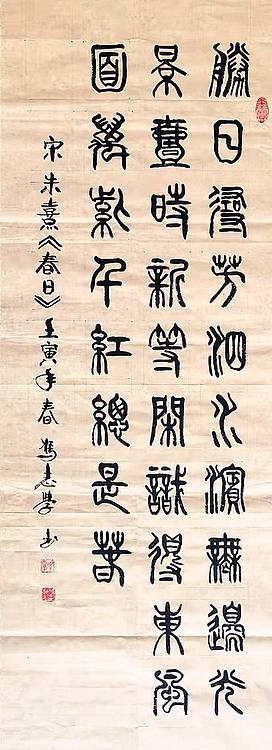 勝日尋芳泗水濱無邊光
景壹時新等閑識得東風
面萬紫千紅總是春
宋朱熹《春日》壬寅年春馮志學书